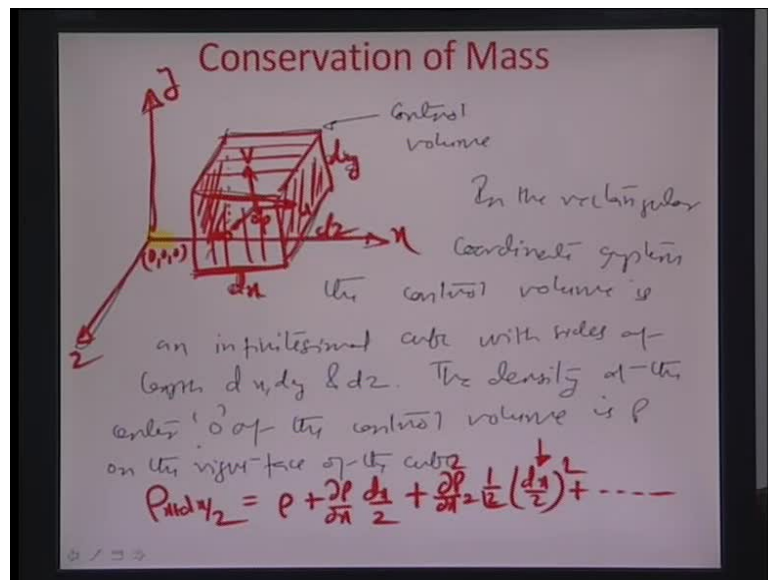 Conservation of Mass
y
Control
volume
v
dy
u
dz
x
(0,0,0)
dx
z
In the rectangular
coordinate system
the control volume is
an infinitesimal cube with sides of
length dx, dy & dz. The density at the
center 'o' of the control volume is ρ
on the right face of the cube
ρx+dx/2 = ρ + ∂ρ/∂x dx/2 + ∂²ρ/∂x² 1/2 (dx/2)² + ------